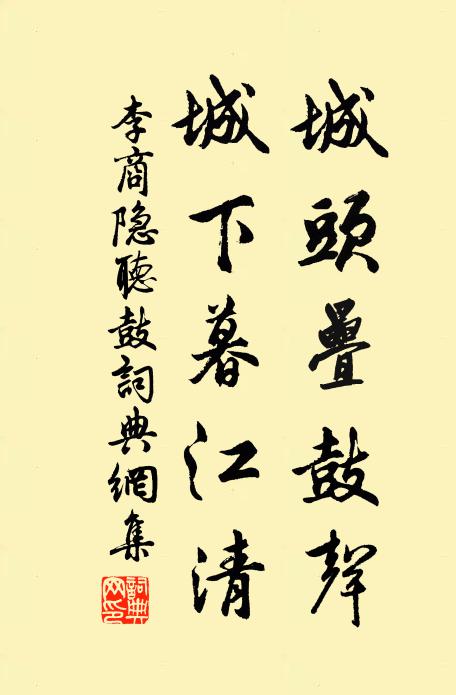 城頭疊鼓聲
城下暮江清
李商隐聽鼓詞典網集
詞典网印